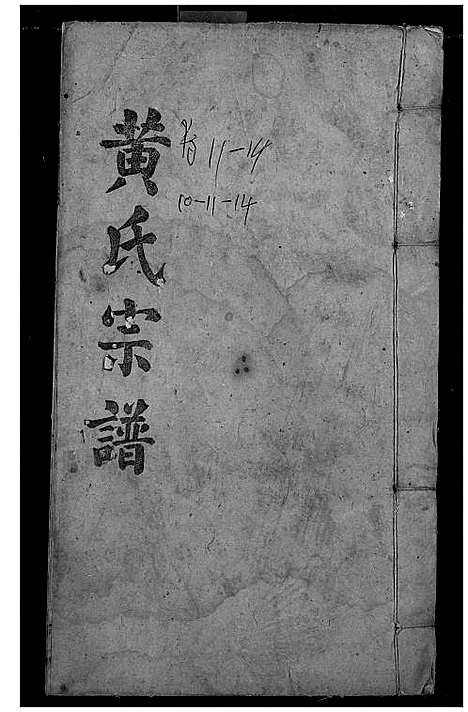 黃氏宗譜
11-14
10-11-14